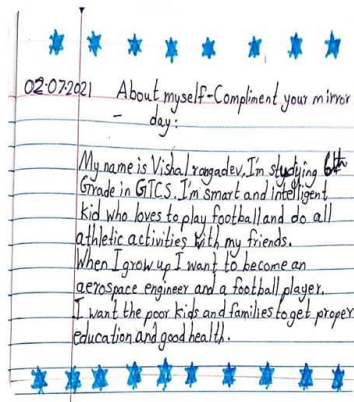 02.07.2021 About myself-Compliment your mirror
- day:
My name is Vishal rangadev, I'm studying 6th
Grade in GTCS. I'm smart and intelligent
kid who loves to play football and do all
athletic activities with my friends.
When I grow up I want to become an
aerospace engineer and a football player.
I want the poor kids and families to get proper
education and good health.